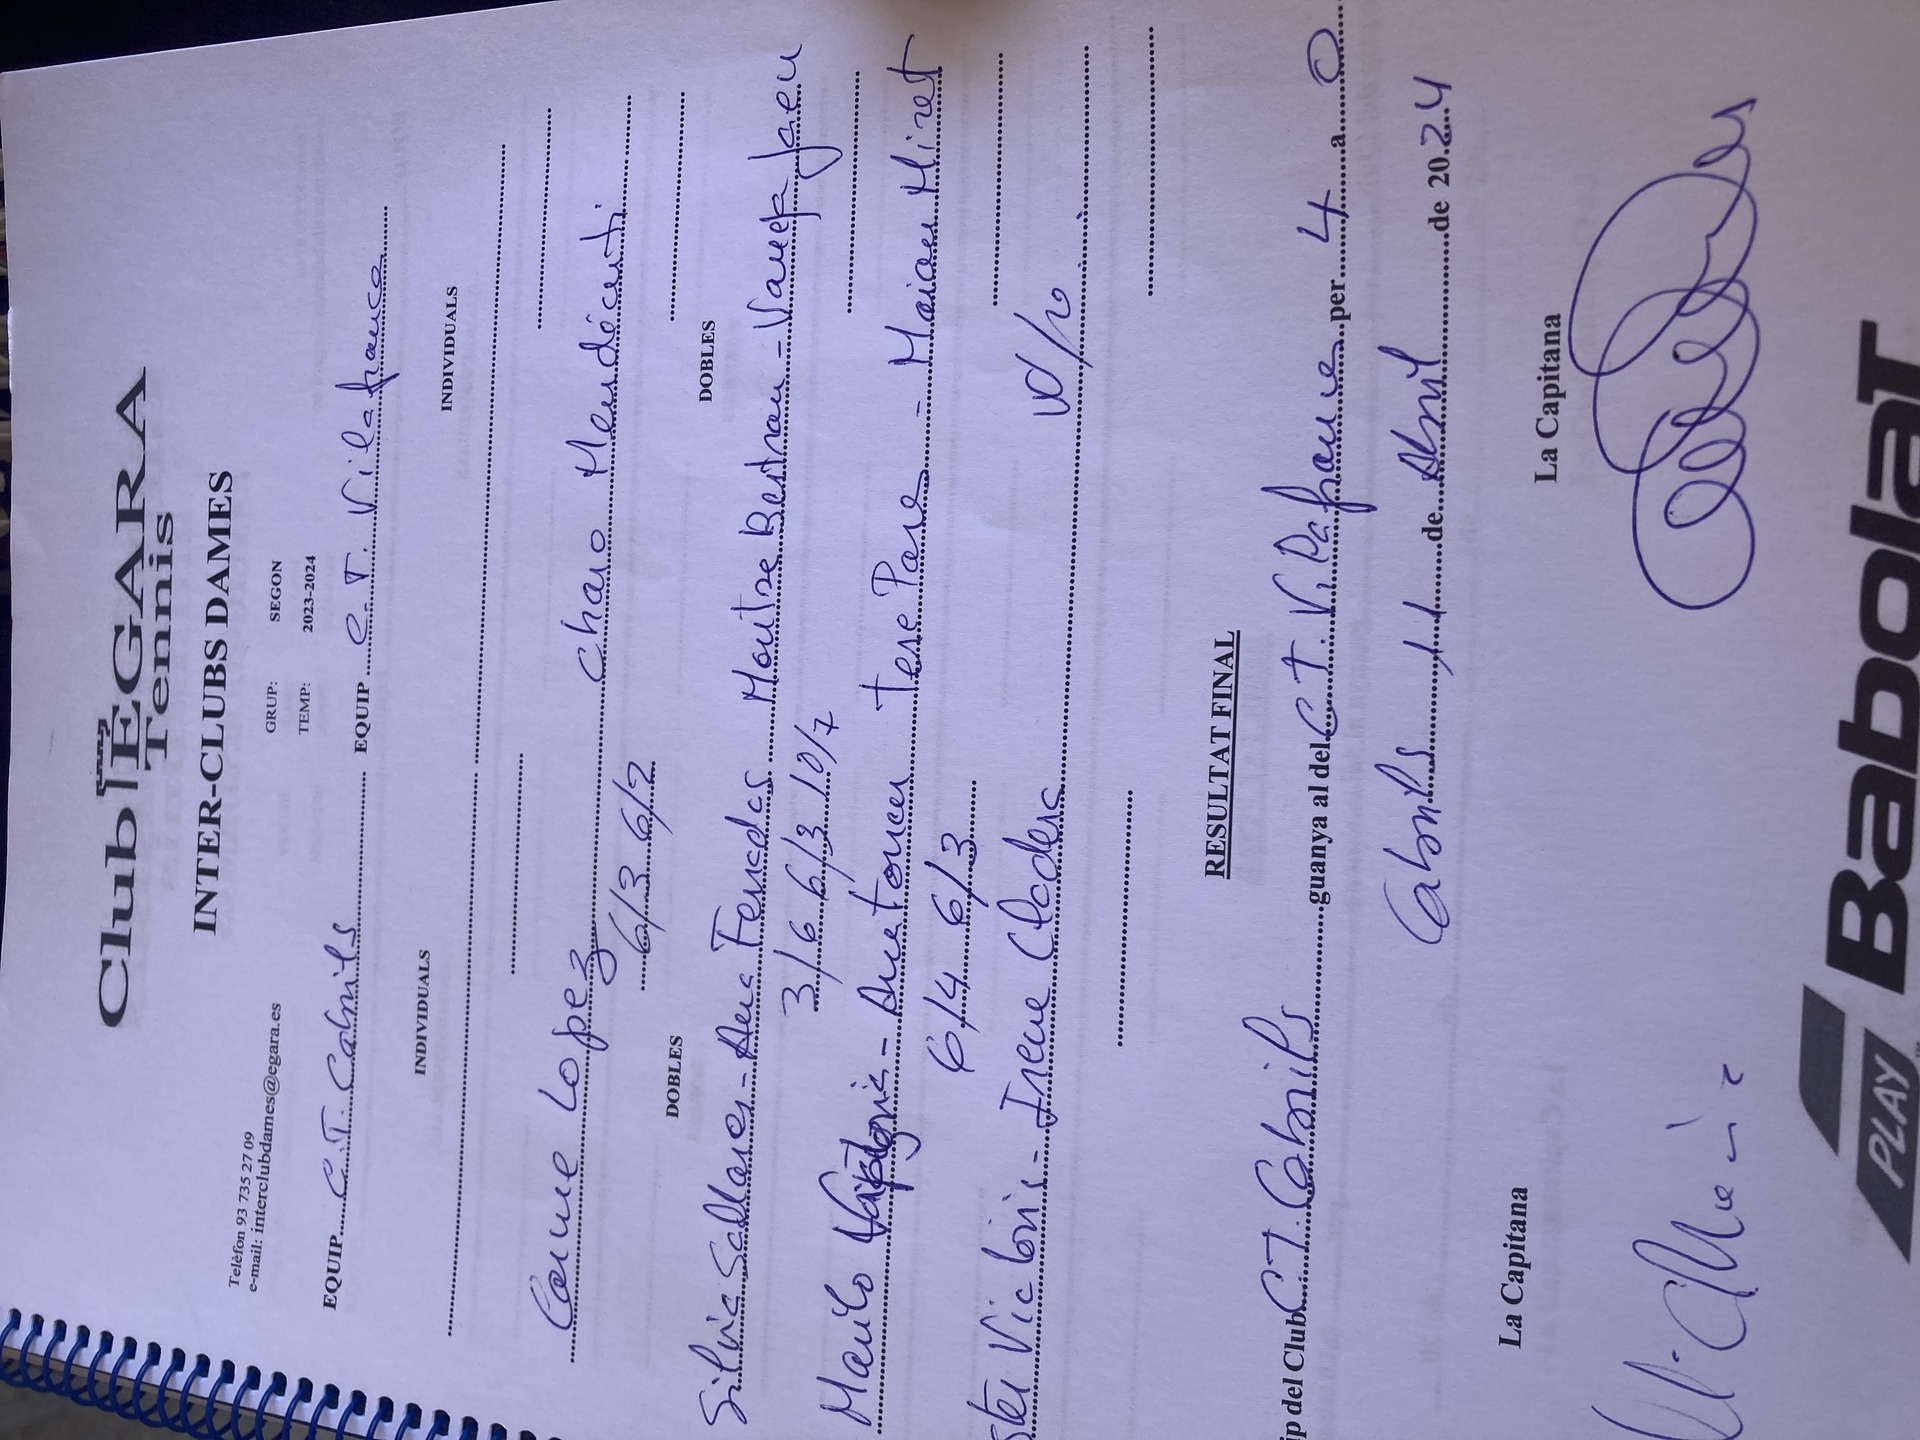 Club EGARA
Tennis
INTER-CLUBS DAMES
Telèfon 93 735 27 09
e-mail: interclubdames@egara.es
GRUP: SEGON
TEMP: 2023-2024
EQUIP C.T. Cabrils EQUIP C.T. Vilafranca
INDIVIDUALS INDIVIDUALS
Carme Lopez Charo Mendécuti
6/3 6/2
DOBLES DOBLES
Silvia Sallares - Ana Ferradas Montse Bertran - Vanesa Jaen
3/6 6/3 10/7
Marilo - Ana Torrents Tere Pare - Marian Miret
6/4 6/3
ster Victoris - Irene Cladera W/o
RESULTAT FINAL
ip del Club C.T. Cabrils guanya al del C.T. Vilafranca per 4 a 0
Cabrils 11 de Abril de 2024
La Capitana La Capitana
PLAY Babolat